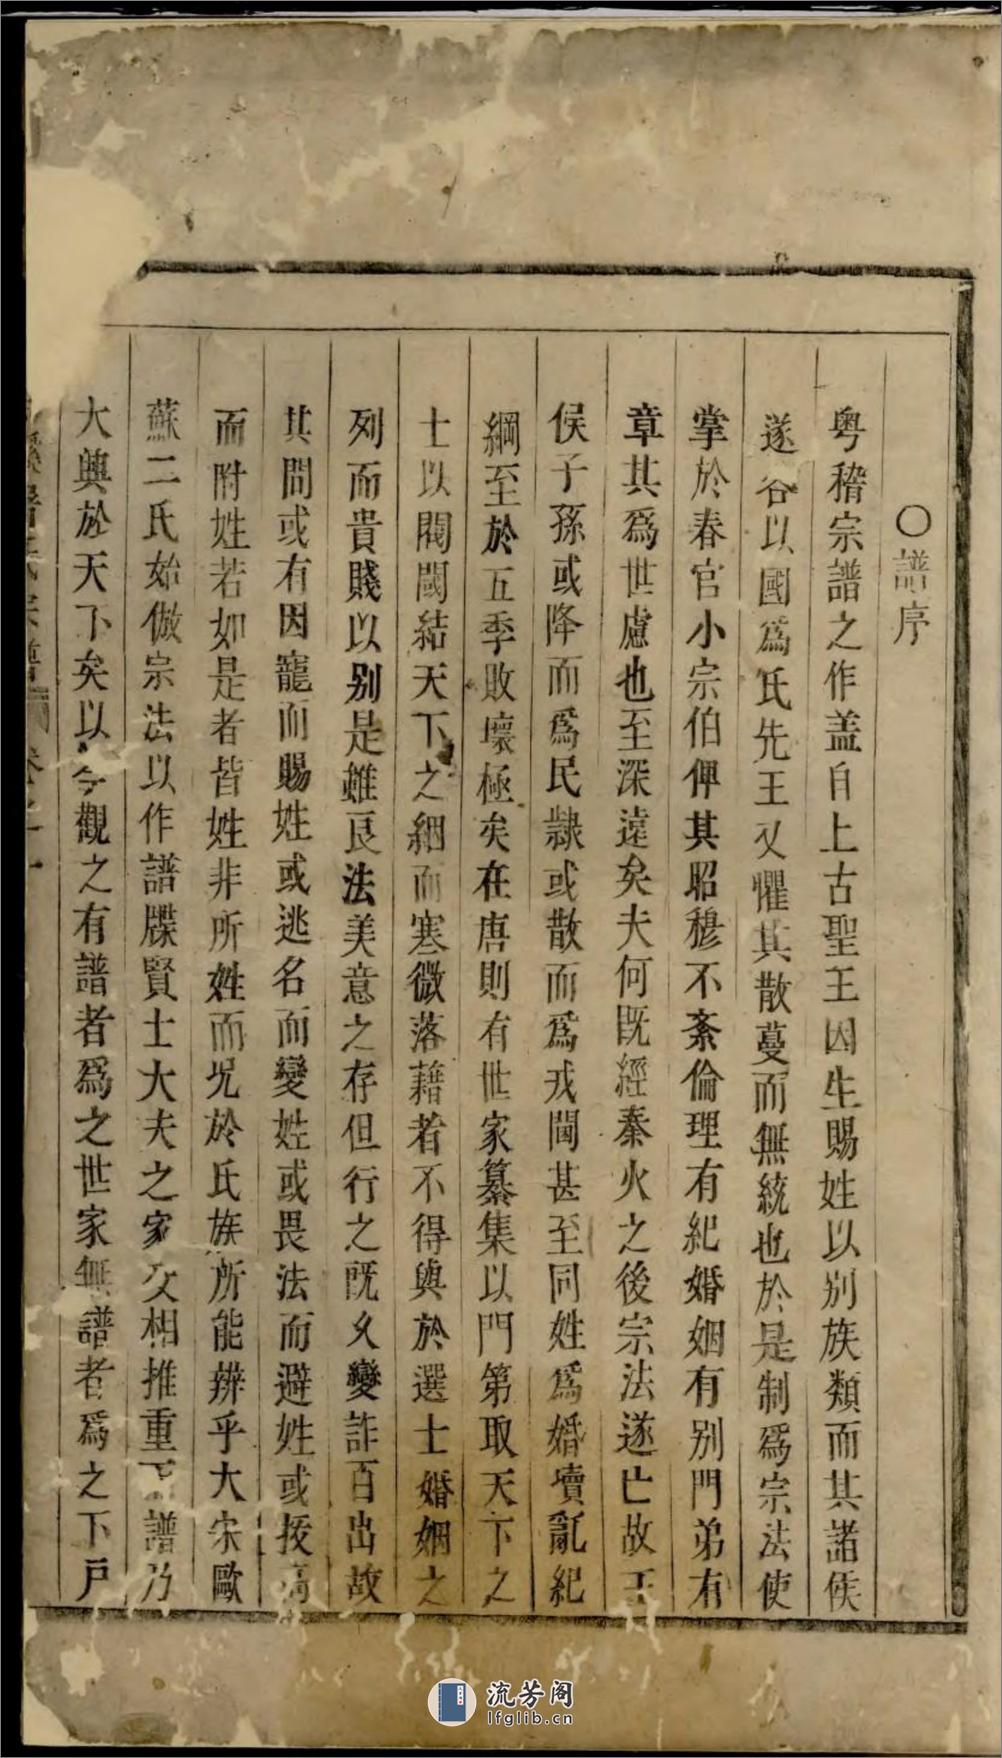 〇譜序
粤稽宗譜之作盖自上古聖王因生賜姓以别族類而其諸侯
遂各以國爲氏先王又懼其散蔓而無統也於是制爲宗法使
掌於春官小宗伯俾其昭穆不紊倫理有紀婚姻有别門弟有
章其爲世慮也至深遠矣夫何既經秦火之後宗法遂亡故王
侯子孫或降而爲民隸或散而爲戎閩甚至同姓爲婚瀆亂紀
綱至於五季敗壞極矣在唐則有世家纂集以門第取天下之
士以閥閱結天下之姻而寒微落藉者不得與於選士婚姻之
列而貴賤以别是雖良法美意之存但行之既久變詐百出故
其間或有因寵而賜姓或逃名而變姓或畏法而避姓或扳高
而附姓若如是者皆姓非所姓而况於氏族所能辨乎大宋歐
蘇二氏始倣宗法以作譜牒賢士大夫之家交相推重而譜乃
大興於天下矣以今觀之有譜者爲之世家無譜者爲之下戸
宗譜 卷之一
流芳阁
lfglib.cn